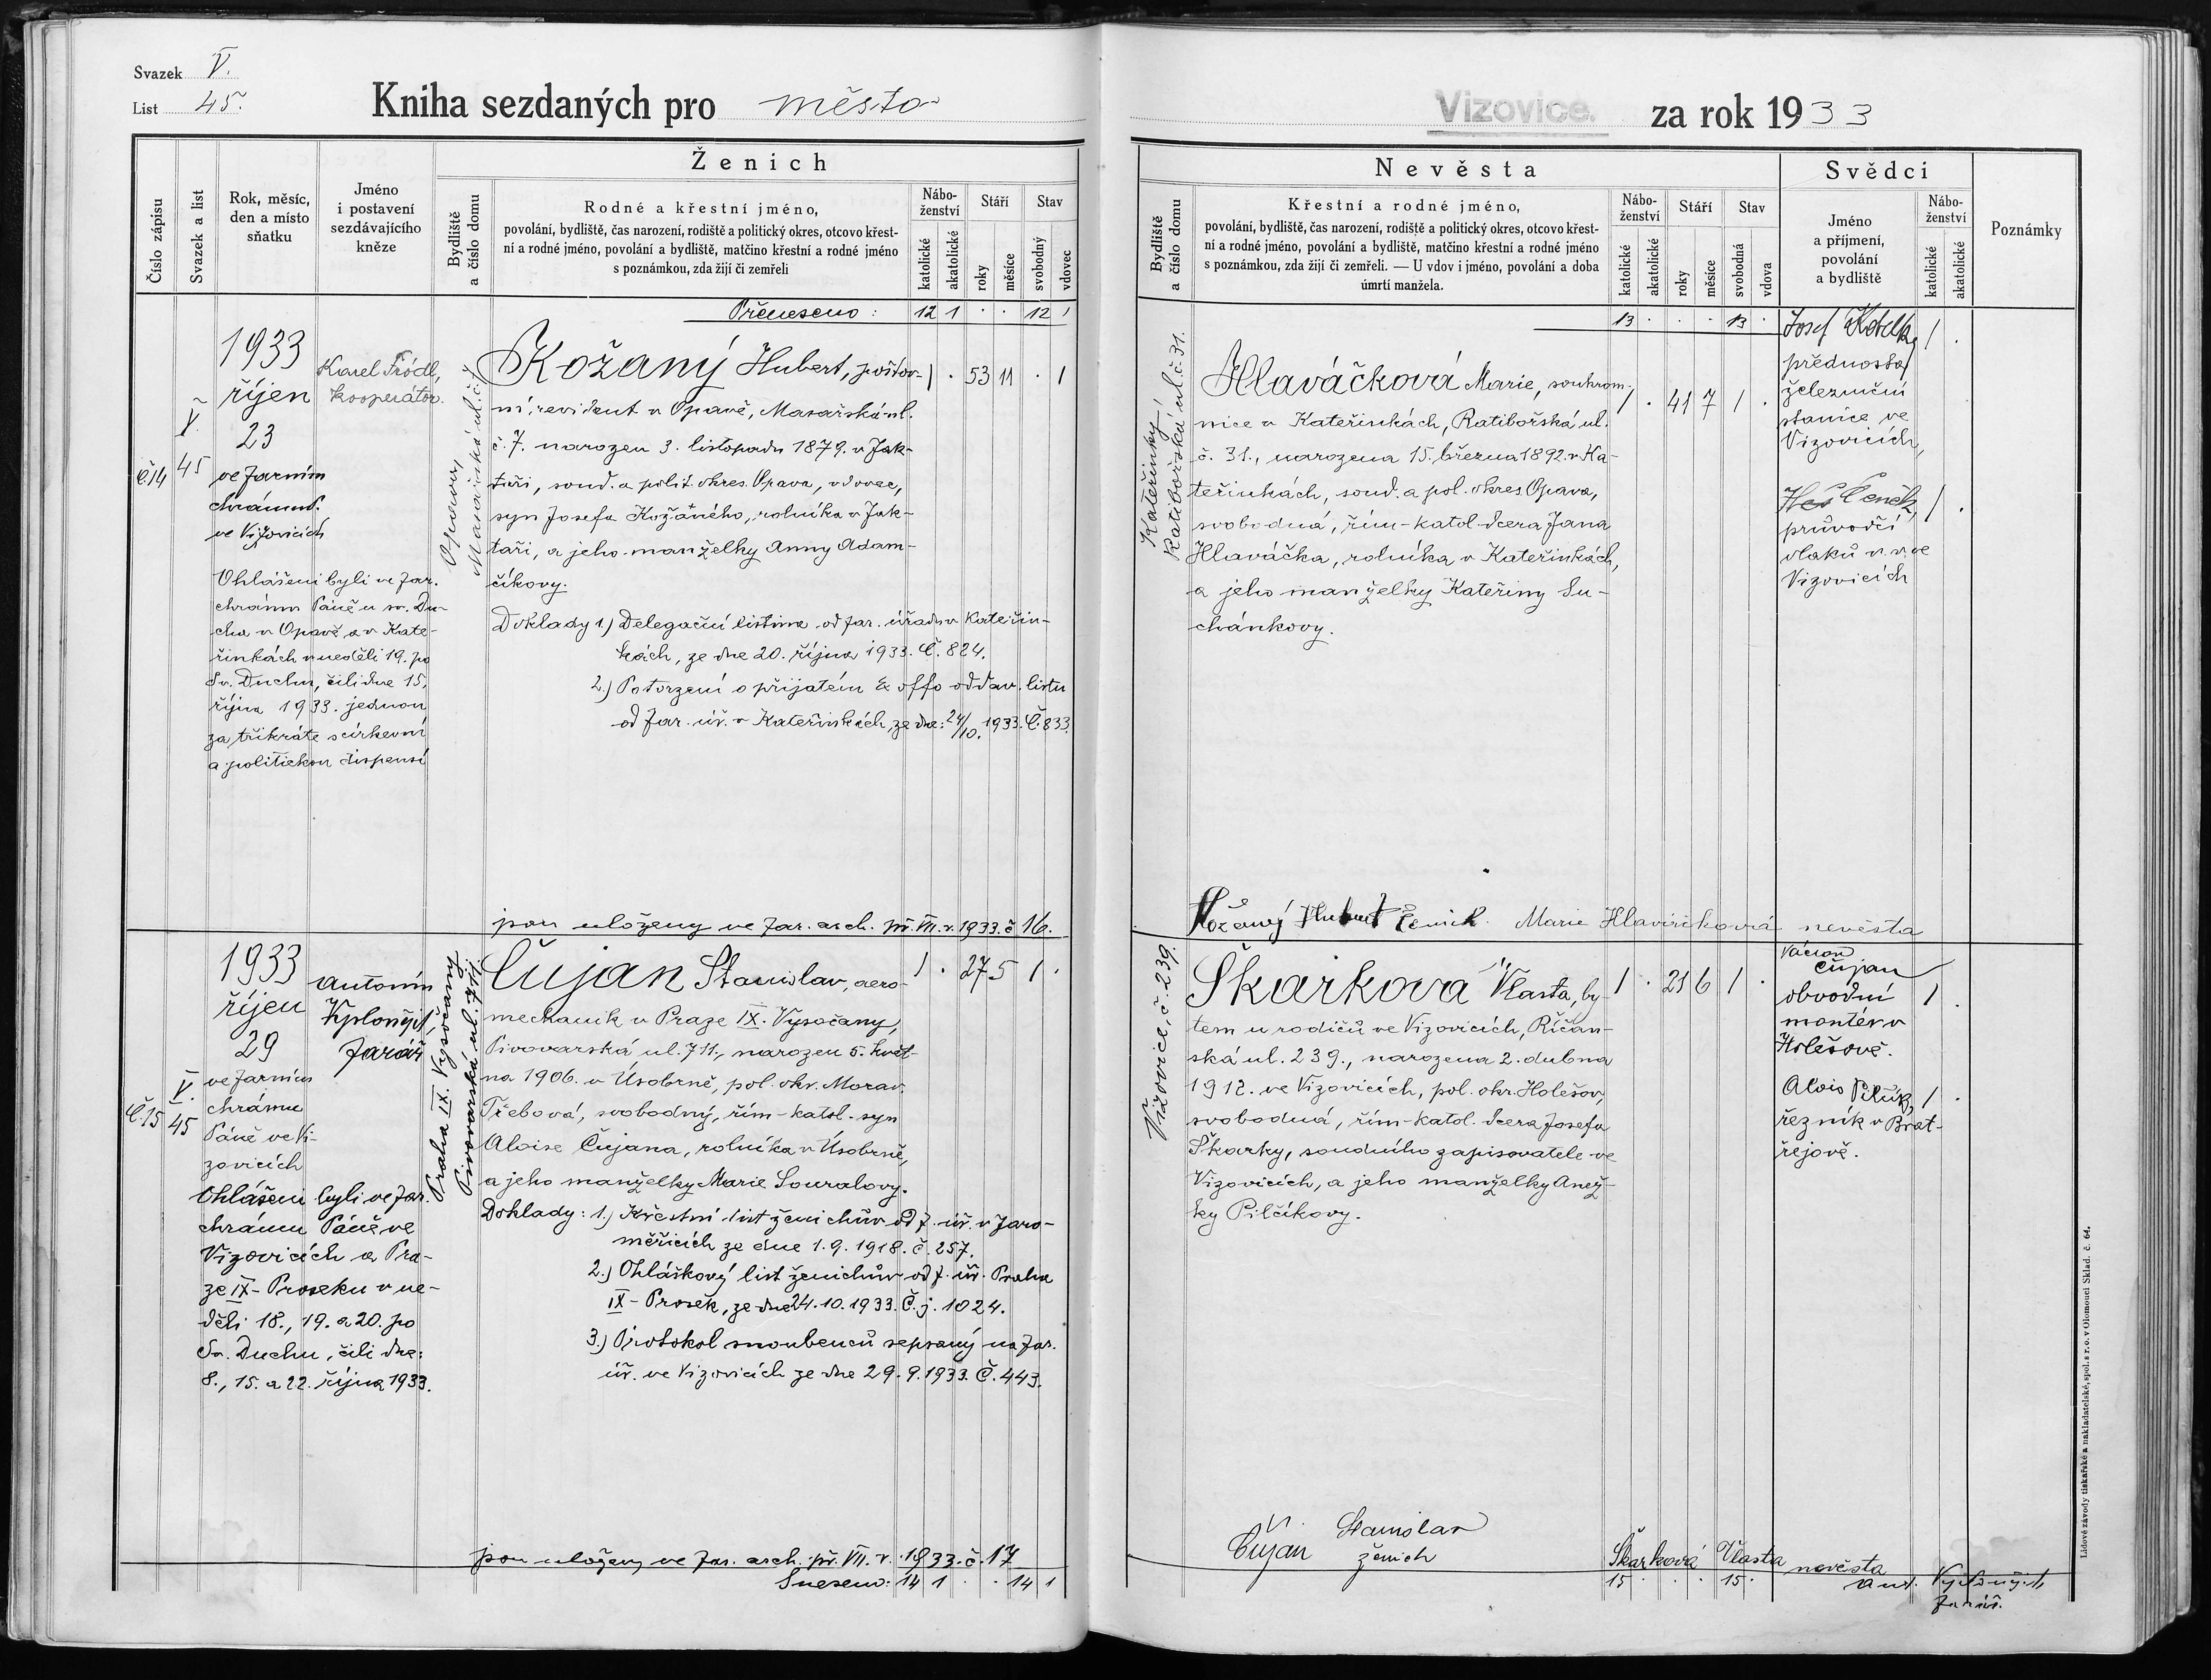 Svazek V.
List 45.
Kniha sezdaných pro město
Vizovice. za rok 1933
Číslo zápisu
Svazek a list
Rok, měsíc,
den a místo
sňatku
Jméno
i postavení
sezdávajícího
kněze
Ženich
Bydliště
a číslo domu
Rodné a křestní jméno,
povolání, bydliště, čas narození, rodiště a politický okres, otcovo křest-
ní a rodné jméno, povolání a bydliště, matčino křestní a rodné jméno
s poznámkou, zda žijí či zemřeli
Nábo-
ženství
katolické
akatolické
Stáří
roky
měsíce
Stav
svobodný
vdovec
Nevěsta
Bydliště
a číslo domu
Křestní a rodné jméno,
povolání, bydliště, čas narození, rodiště a politický okres, otcovo křest-
ní a rodné jméno, povolání a bydliště, matčino křestní a rodné jméno
s poznámkou, zda žijí či zemřeli. — U vdov i jméno, povolání a doba
úmrtí manžela.
Nábo-
ženství
katolické
akatolické
Stáří
roky
měsíce
Stav
svobodná
vdova
Svědci
Jméno
a příjmení,
povolání
a bydliště
Nábo-
ženství
katolické
akatolické
Poznámky
Přeneseno: 12 1 . . 12 1
13 . . . 13 .
Č.14
V.
45
1933
říjen
23
ve farním
chrámu P.
ve Vizovicích
Ohlášeni byli ve far.
chrámu Páně u sv. Du-
cha v Opavě a v Kate-
řinkách v neděli 19. po
Sv. Duchu, čili dne 15.
října 1933. jednou
za třikráte s církevní
a politickou dispensí
Karel
kooperátor.
Opava,
Masařská ul. č. 7
Kožaný Hubert, poštov- 1 . 53 11 . 1
ní revident v Opavě, Masařská ul.
č. 7. narozen 3. listopadu 1879. v Jak-
taři, soud. a polit. okres Opava, vdovec,
syn Josefa Kožaného, rolníka v Jak-
taři, a jeho manželky Anny Adam-
číkovy.
Doklady 1.) Delegační listina od far. úřadu v Kateřin-
kách, ze dne 20. října 1933. Č. 824.
2.) Potvrzení o přijatém Ex offo oddav. listu
od far. úř. v Kateřinkách, ze dne: 24/10. 1933. Č. 833.
jsou uloženy ve far. arch. př. VII. r. 1933. č 16.
Kateřinky
Ratibořská ul. č. 31.
Hlaváčková Marie, soukrom- 1 . 41 7 1 .
nice v Kateřinkách, Ratibořská ul.
č. 31., narozena 15. března 1892. v Ka-
teřinkách, soud. a pol. okres Opava,
svobodná, řím-katol. dcera Jana
Hlaváčka, rolníka v Kateřinkách,
a jeho manželky Kateřiny Su-
chánkovy.
Josef 1 .
přednosta
železniční
stanice ve
Vizovicích,
Čeněk, 1 .
průvodčí
vlaků v. v. ve
Vizovicích
Kožaný Hubert ženich. Marie Hlaváčková nevěsta
Č.15
V.
45
1933
říjen
29
ve farním
chrámu
Páně ve Vi-
zovicích
Ohlášeni byli ve far.
chrámu Páně ve
Vizovicích a Pra-
ze IX - Proseku v ne-
děli 18., 19. a 20. po
Sv. Duchu, čili dne:
8., 15. a 22. října 1933.
Antonín
Vyplonych,
farář
Praha IX. Vysočany
Pivovarská ul. 711.
Čujan Stanislav, aero- 1 . 27 5 1 .
mechanik v Praze IX. Vysočany,
Pivovarská ul. 711., narozen 5. květ-
na 1906. v Úsobrně, pol. okr. Morav.
Třebová, svobodný, řím-katol. syn
Aloise Čujana, rolníka v Úsobrně,
a jeho manželky Marie Souralovy.
Doklady: 1.) Křestní list ženichův od f. úř. v Jaro-
měřicích ze dne 1. 9. 1918. č. 257.
2.) Ohláškový list ženichův od f. úř. Praha
IX - Prosek, ze dne 24. 10. 1933. Č. j. 1024.
3.) Protokol snoubenců sepsaný na far.
úř. ve Vizovicích ze dne 29. 9. 1933. Č. 443.
jsou uloženy ve far. arch. př. VII. r. 1933. č. 17
Sneseno: 14 1 . . 14 1
Vizovice, č. 239.
Škarková Vlasta, by- 1 . 21 6 1 .
tem u rodičů ve Vizovicích, Říčan-
ská ul. 239., narozena 2. dubna
1912. ve Vizovicích, pol. okr. Holešov,
svobodná, řím-katol. dcera Josefa
Škarky, soudního zapisovatele ve
Vizovicích, a jeho manželky Anež-
ky Pilčíkovy.
Václav
Čujan
obvodní 1 .
montér v
Holešově.
Alois 1 .
řezník v Brat-
řejově.
Čujan Stanislav
ženich
Škarková Vlasta nevěsta
15 . . . 15 .
Ant. Vyplonych
farář.
Lidové závody tiskařské a nakladatelské, spol. s r. o. v Olomouci Sklad. č. 64.